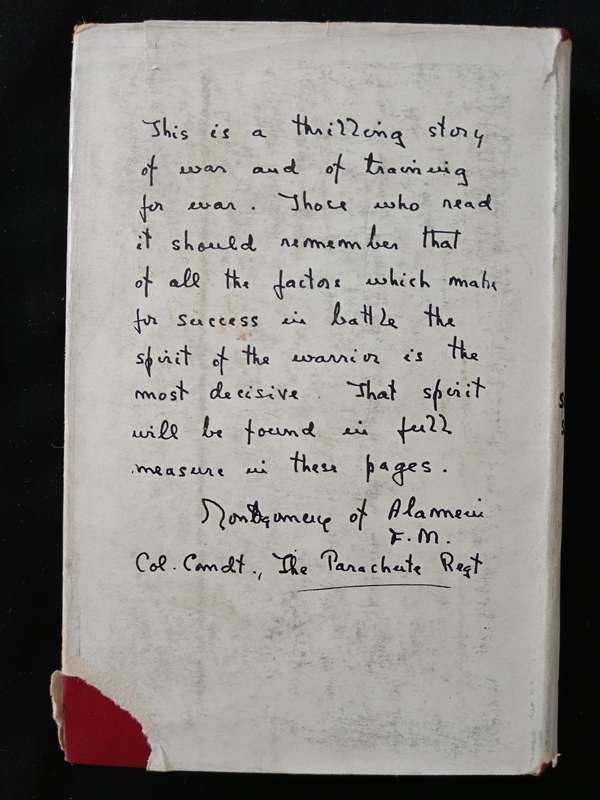 This is a thrilling story
of war and of training
for war. Those who read
it should remember that
of all the factors which make
for success in battle the
spirit of the warrior is the
most decisive. That spirit
will be found in full
measure in these pages.
Montgomery of Alamein
F.M.
Col. Comdt., The Parachute Regt